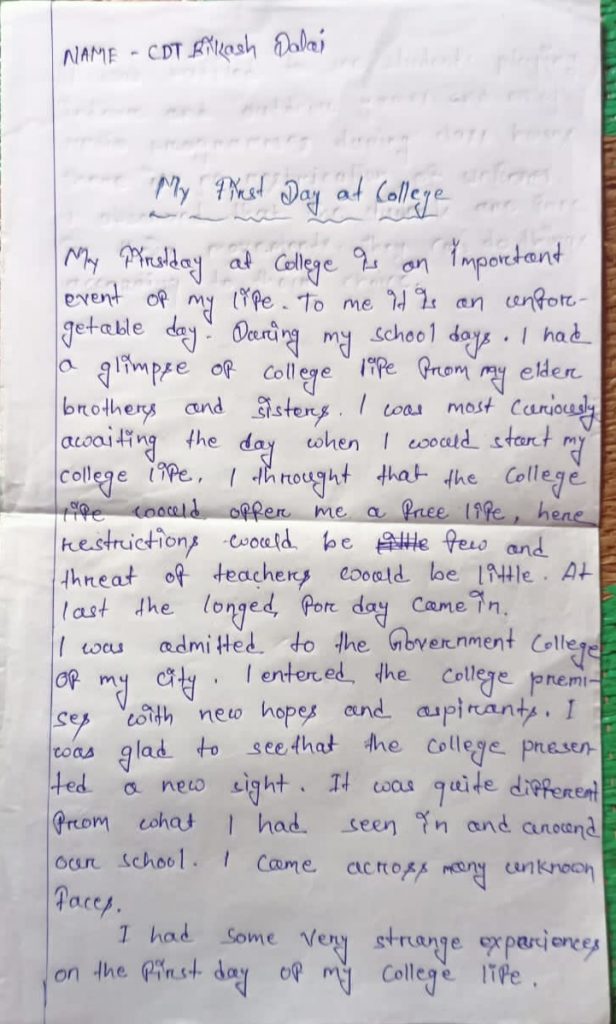 NAME - CDT Bikash Dalai
My First Day at College
My Firstday at College is an important
event of my life. To me it is an unfor-
getable day. During my school days. I had
a glimpse of college life from my elder
brothers and sisters. I was most curiously
awaiting the day when I woould start my
college life. I throught that the College
life woould offer me a free life, here
restrictions woould be few and
threat of teachers woould be little. At
last the longed for day came in.
I was admitted to the Government College
of my city. I entered the college premi-
ses with new hopes and aspirants. I
was glad to see that the college presen-
ted a new sight. It was quite different
from what I had seen in and around
our school. I came across many unknown
faces.
I had some very strange experiences
on the first day of my College life.